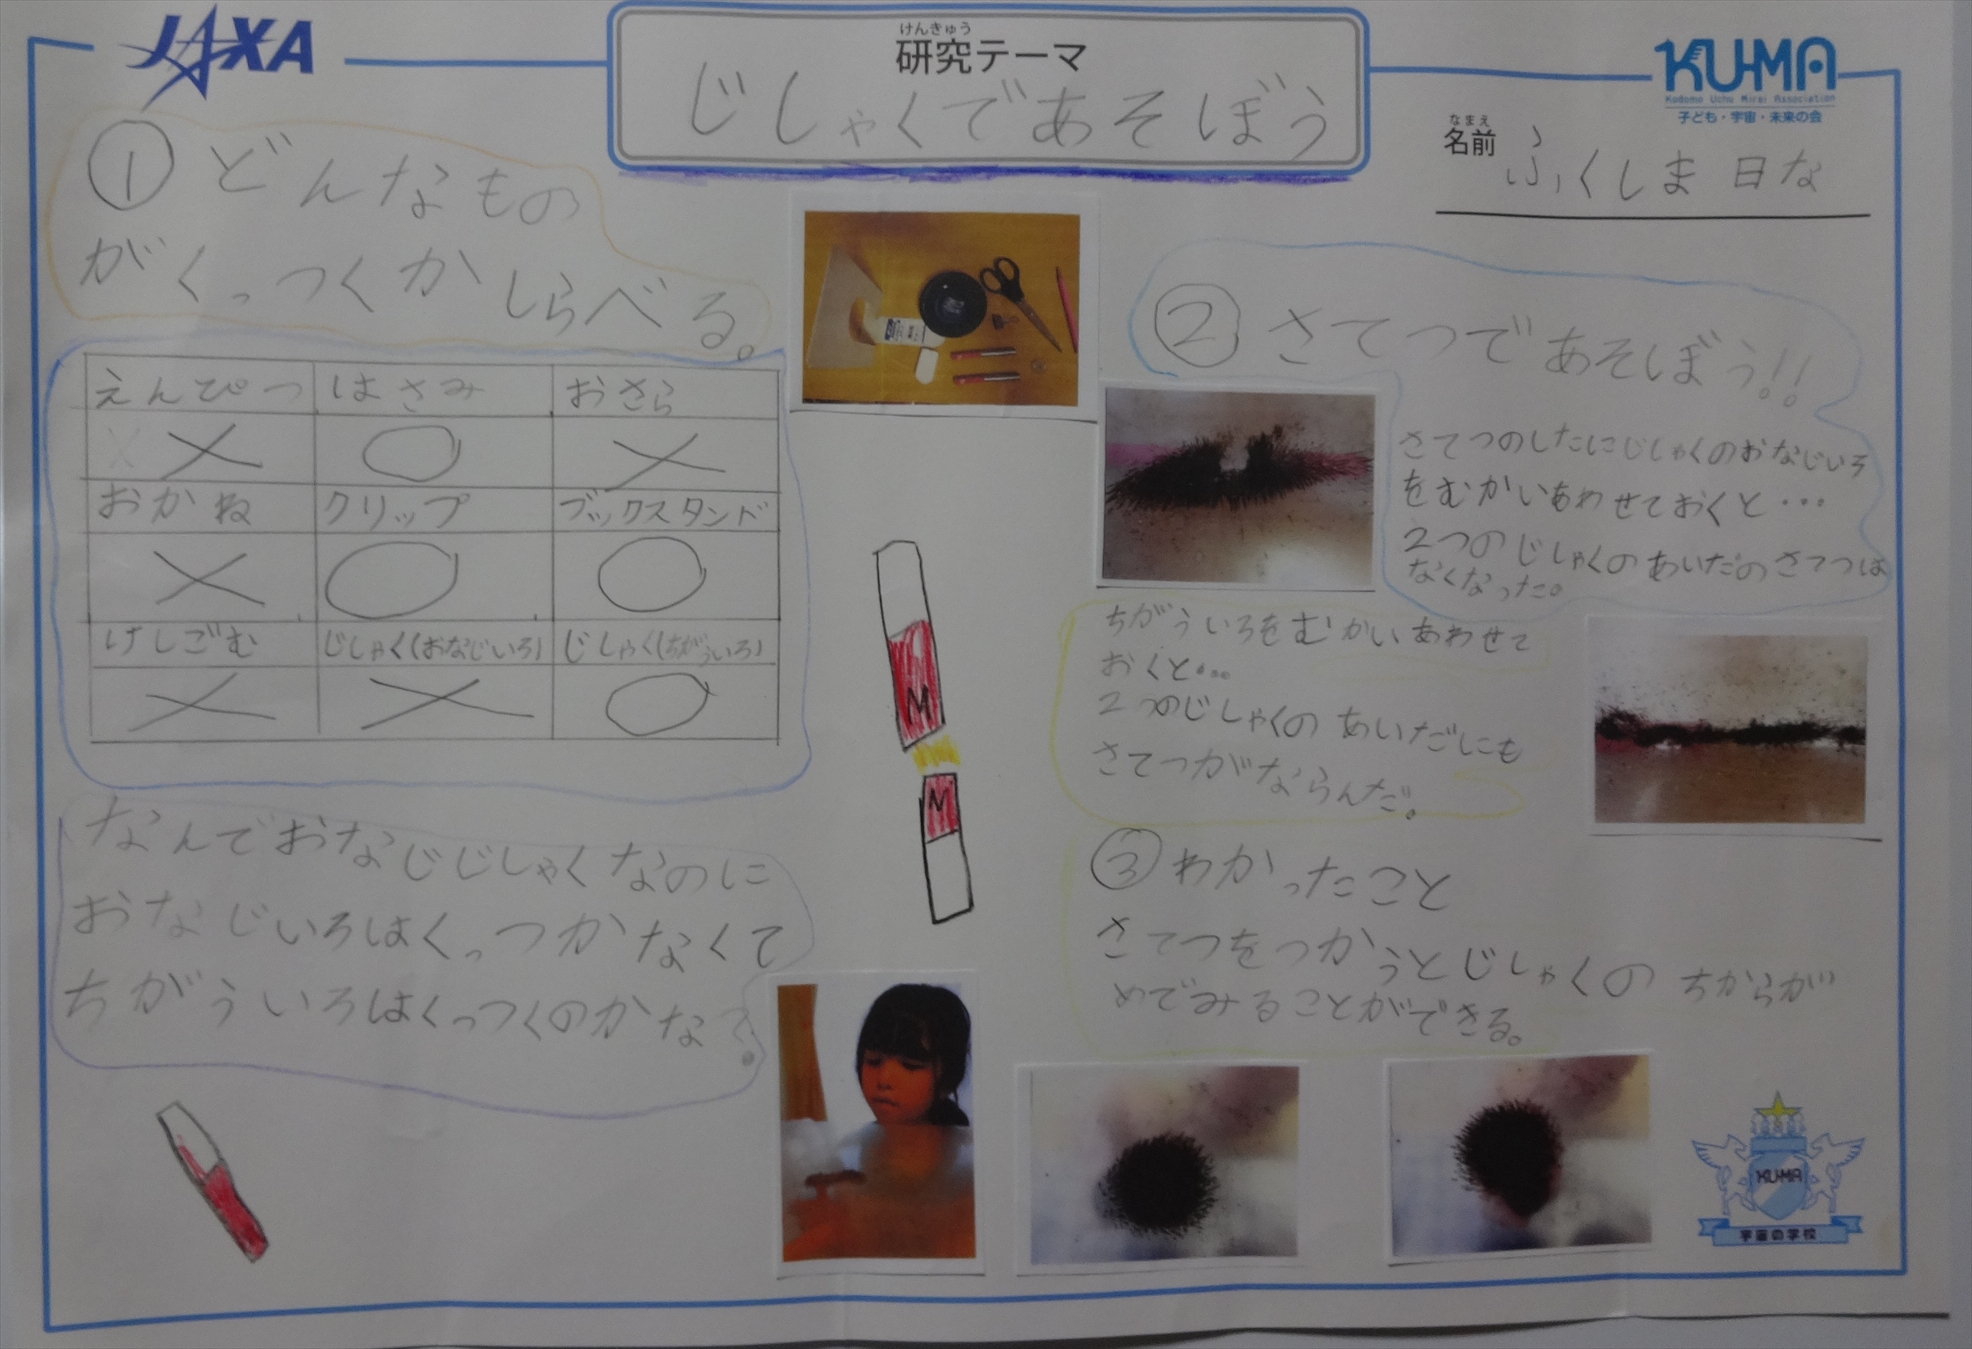 JAXA
けんきゅう
研究テーマ
じしゃくであそぼう
KU-MA
Kodomo Uchu Mirai Association
子ども・宇宙・未来の会
なまえ
名前 ふくしま 日な
① どんなもの
がくっつくか しらべる。
えんぴつ はさみ おさら
× ○ ×
おかね クリップ ブックスタンド
× ○ ○
けしごむ じしゃく(おなじいろ) じしゃく(ちがういろ)
× × ○
なんでおなじじしゃくなのに
おなじいろはくっつかなくて
ちがういろはくっつくのかな?
M
M
② さてつであそぼう!!
さてつのしたにじしゃくのおなじいろ
をむかいあわせておくと・・・
2つのじしゃくのあいだのさてつは
なくなった。
ちがういろをむかいあわせて
おくと・・・
2つのじしゃくのあいだにも
さてつがならんだ。
③ わかったこと
さてつをつかうとじしゃくのちからが
めでみることができる。
KU-MA
宇宙の学校